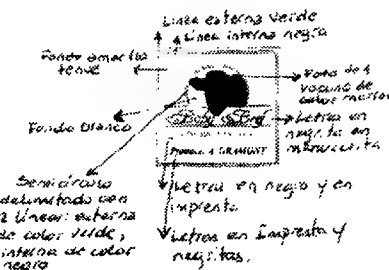 Linea externa verde
Linea interna negra
Fondo amarillo
tenue
Foto de 1
vacuno de
color marron
Letras en
negrita en
minuscula
Fondo Blanco
Semicirculo
delimitado con
2 lineas: externa
de color verde,
interna de color
negro
Letras en negro y en
imprenta
Letras en Imprenta y
negritas.